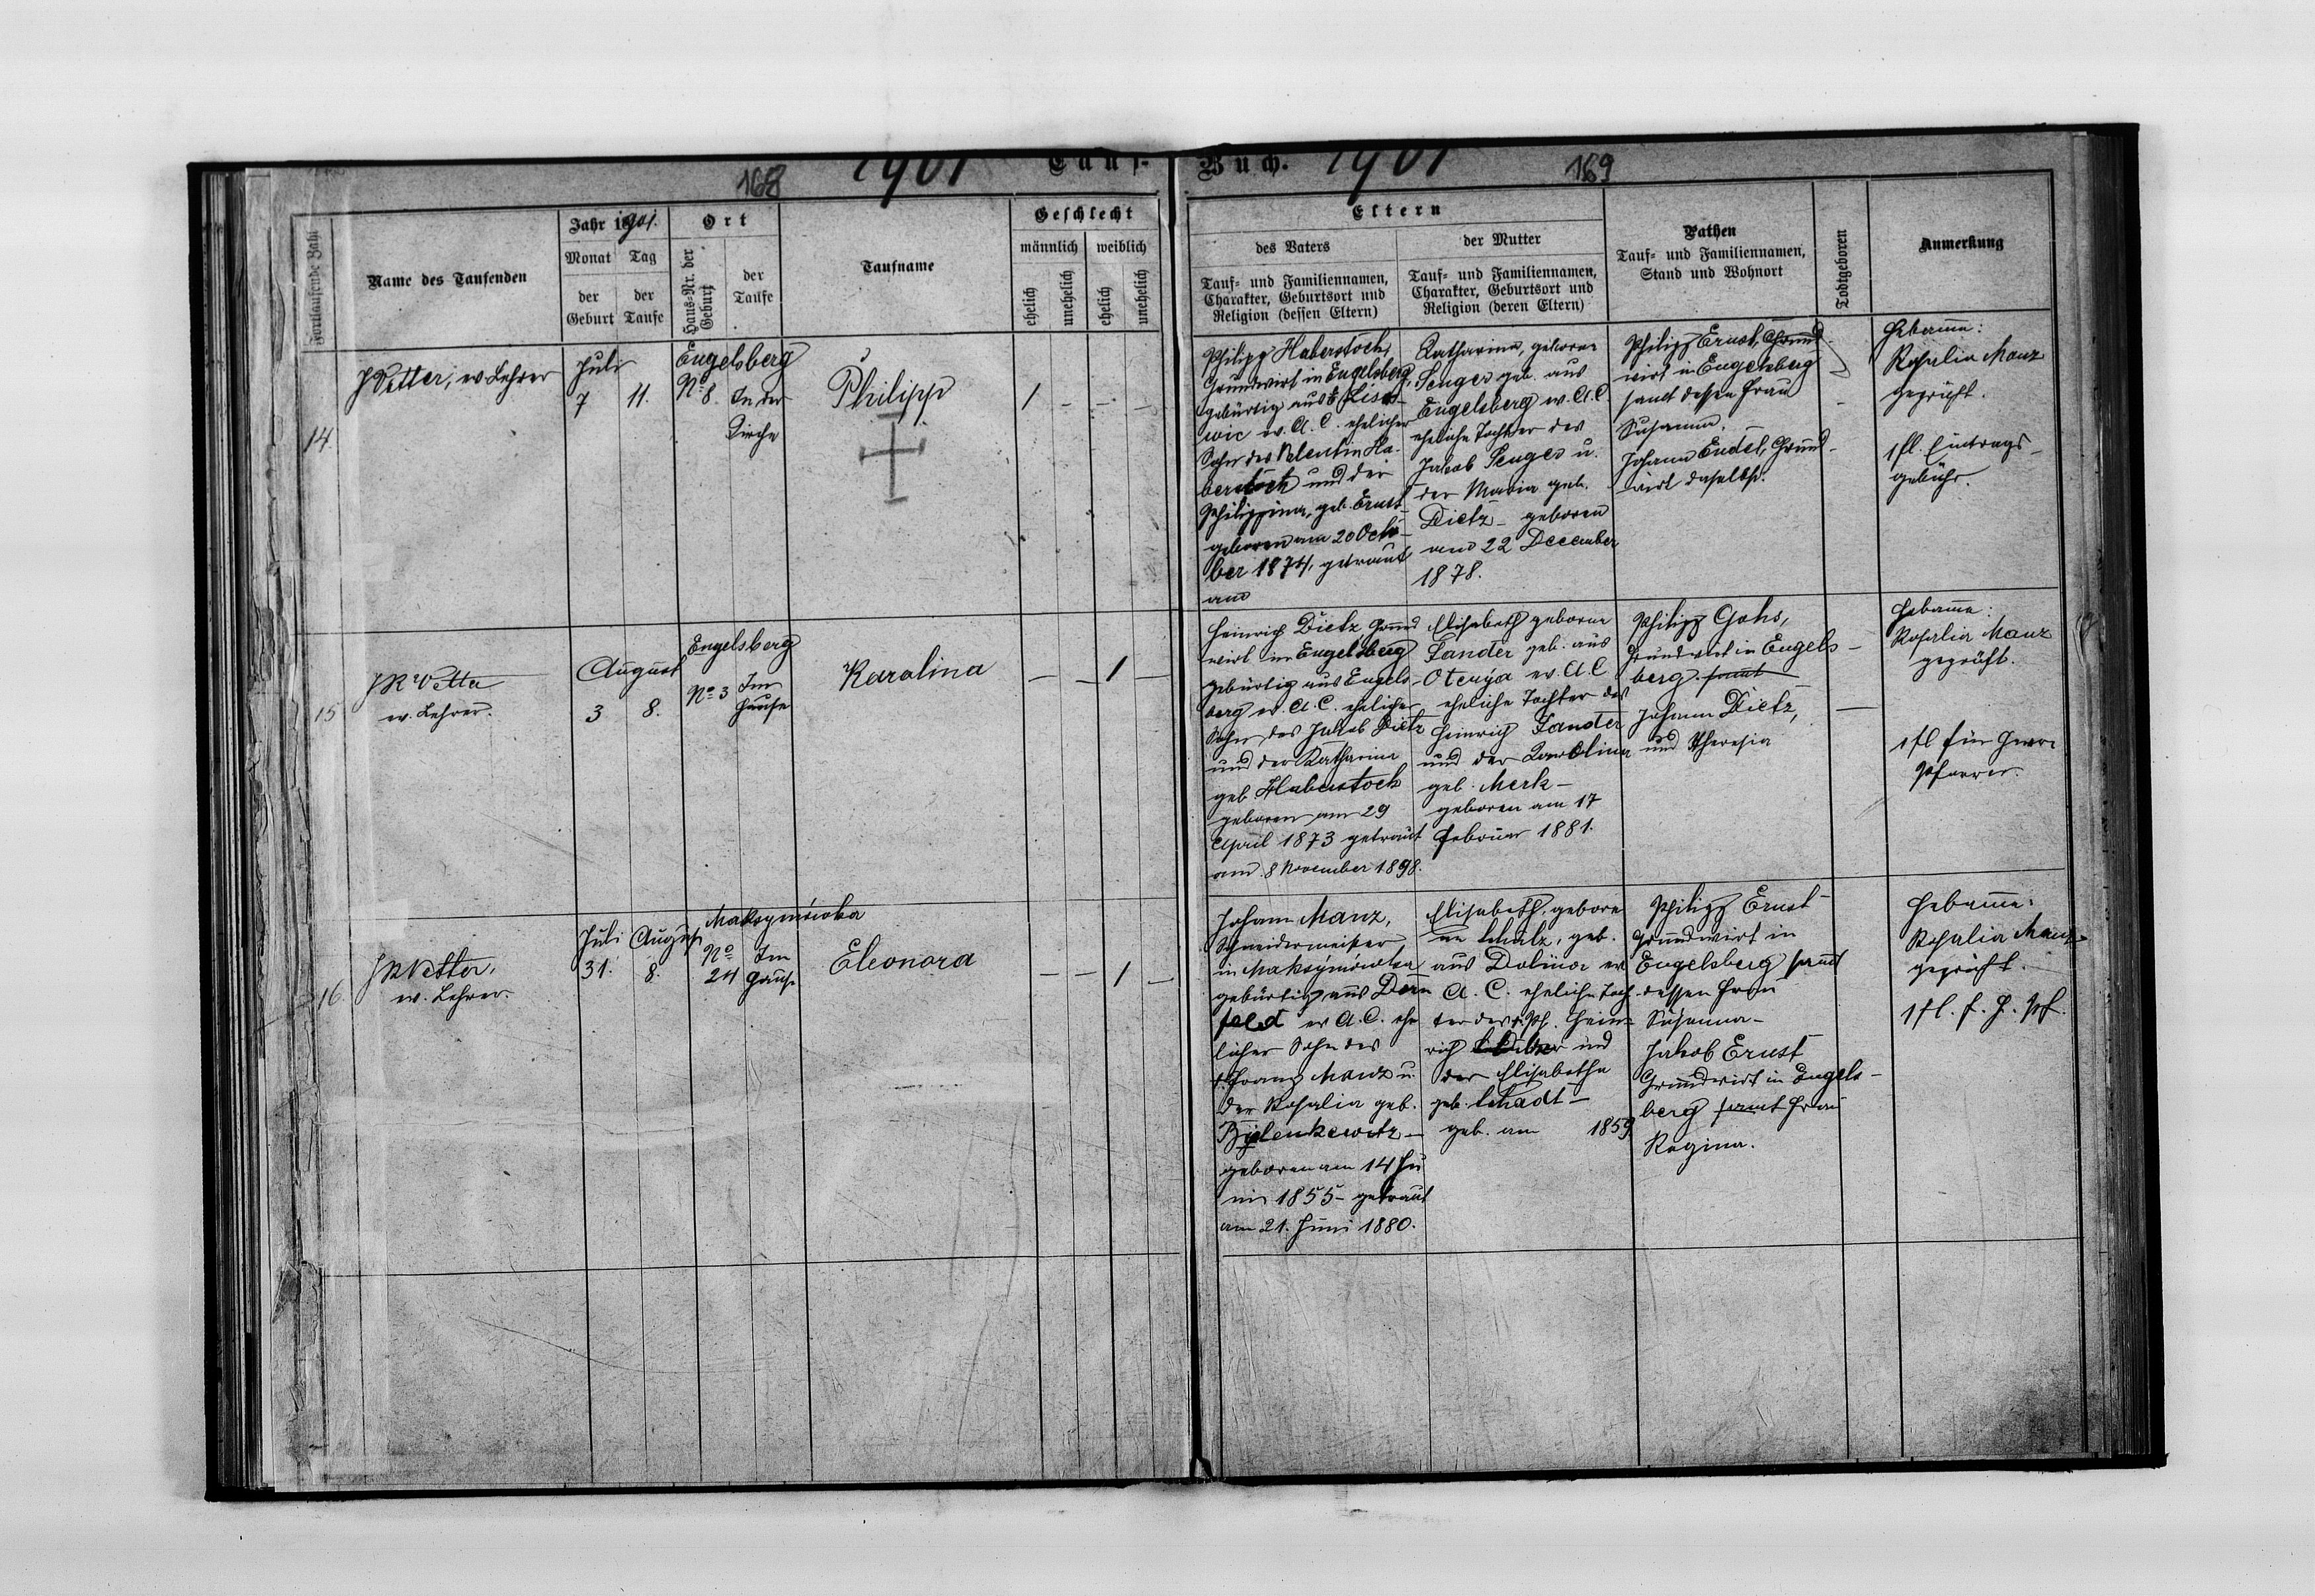 1901 Tauf-Buch. 1901
168
169
Fortlaufende Zahl
Name des Taufenden
Jahr 1901.
Monat der Geburt
Tag der Taufe
Ort
Haus-Nr. der Geburt
der Taufe
Taufname
Geschlecht
männlich
weiblich
ehelich
unehelich
ehelich
unehelich
Eltern
des Vaters
Tauf- und Familiennamen,
Charakter, Geburtsort und
Religion (dessen Eltern)
der Mutter
Tauf- und Familiennamen,
Charakter, Geburtsort und
Religion (deren Eltern)
Pathen
Tauf- und Familiennamen,
Stand und Wohnort
Todtgeboren
Anmerkung
14.
Vetter, ev Lehrer
Juli
7
11.
Engelsberg
No 8.
In der
Kirche
Philipp
1 - - -
Philipp Haberstock,
Grundwirt in Engelsberg,
gebürtig aus
ev. A. C. ehelicher
Sohn des Valentin Ha-
berstock und der
Philippina, geb. Ernst
geboren am 20 Octo-
ber 1874, getraut
am
Katharina, geborene
Senger geb. aus
Engelsberg ev. A. C.
eheliche Tochter des
Jakob Senger u.
der Maria geb.
Dietz - geboren
am 22 December
1878.
Philipp Ernst, Grund-
wirt in Engelsberg
samt dessen Frau
Susanna.
Johann Endel, Grund-
wirt daselbst.
-
Hebamme:
Rosalia Manz
geprüft.
1 fl. Eintrags-
gebühr.
15
JR Vetter
ev. Lehrer.
August
3
8.
Engelsberg
No 3
Im
Hause
Karolina
- - 1 -
Heinrich Dietz Grund
wirt in Engelsberg
gebürtig aus Engels-
berg ev. A. C. ehelicher
Sohn des Jakob Dietz
und der Katharina
geb. Haberstock
geboren am 29
April 1873 getraut
am 8 November 1898.
Elisabeth geborene
Sander geb. aus
ev. A. C
eheliche Tochter des
Heinrich Sander
und der Karolina
geb. Merk -
geboren am 17
Februar 1881.
Philipp Gohs,
Grundwirt in Engels-
berg. samt
Johann Dietz,
und Theresia
-
Hebamme:
Rosalia Manz
geprüft.
1 fl für Herrn
Pfarrer.
16.
JR Vetter,
ev. Lehrer.
Juli
31.
August
8.
Maksymówka
No
24
Im
Hause
Eleonora
- - 1 -
Johann Manz,
Schneidermeister
in Maksymówka
gebürtig aus Dorn
feld ev A. C. ehe
licher Sohn des
Franz Manz u.
der Rosalia geb.
geboren am 14 Ju
ni 1855 - getraut
am 21. Juni 1880.
Elisabeth, gebore
ne Schatz, geb.
aus Dolina ev
A. C. eheliche Toch-
ter des Hein-
rich und
der Elisabetha
geb. Schadt -
geb. am 1859
Philipp Ernst
Grundwirt in
Engelsberg samt
dessen Frau
Susanna -
Jakob Ernst
Grundwirt in Engels-
berg samt Frau
Regina.
Hebamme:
Rosalia Manz
geprüft.
1 fl. f. H. Pf.